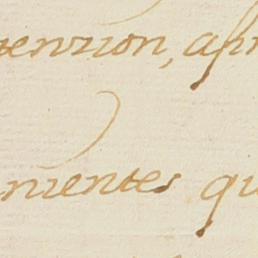 venzion, afin
nientes qu